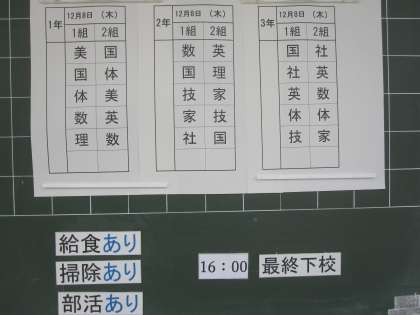 1年 12月8日 (木)
1組 2組
美 国
国 体
体 美
数 英
理 数
2年 12月8日 (木)
1組 2組
数 英
国 理
技 家
家 技
社 国
3年 12月8日 (木)
1組 2組
国 社
社 英
英 数
体 体
技 家
給食あり
掃除あり 16:00 最終下校
部活あり